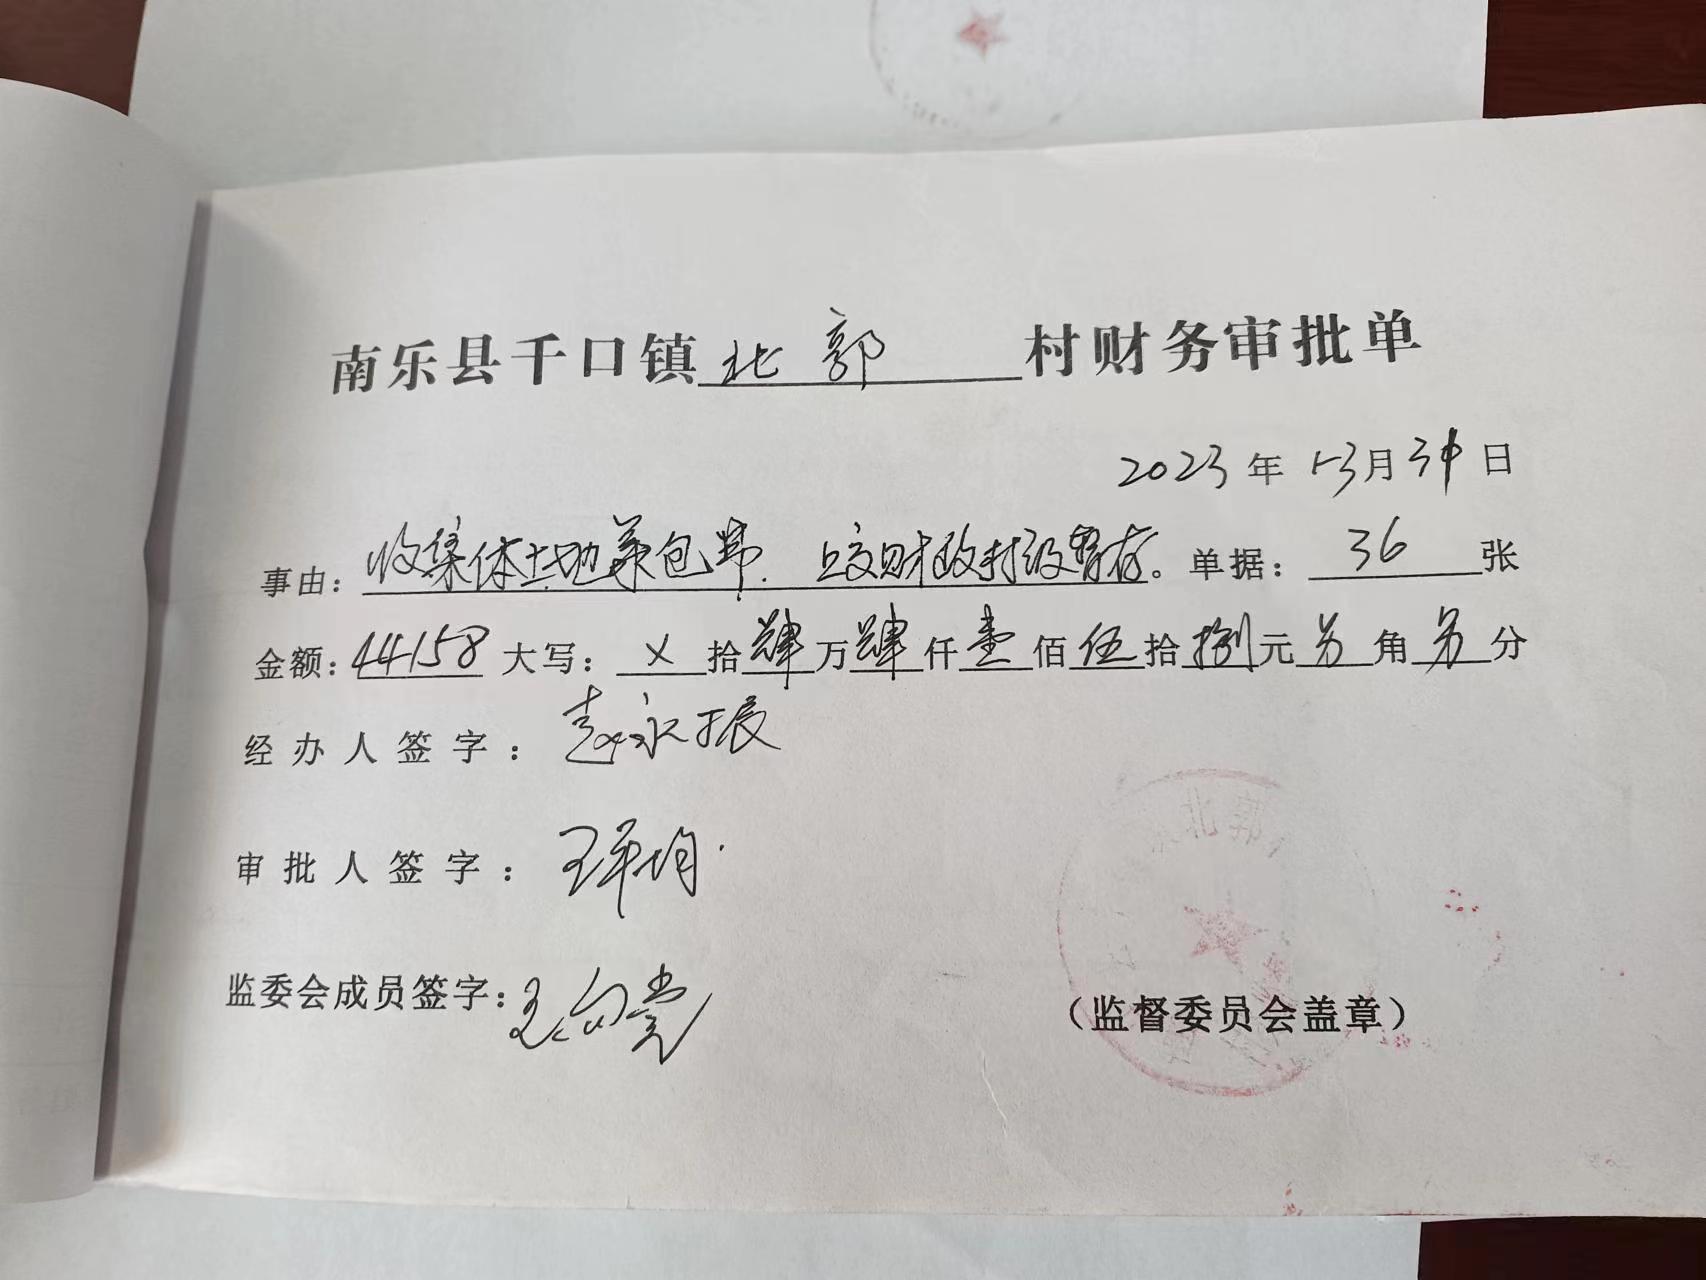 南乐县千口镇北郭村财务审批单
2023年1-3月31日
事由：收集体土地承包费．上交财政村级暂存。单据：36张
金额：44158大写：×拾肆万肆仟壹佰伍拾捌元另角另分
经办人签字：赵永振
审批人签字：王平均
监委会成员签字：
（监督委员会盖章）